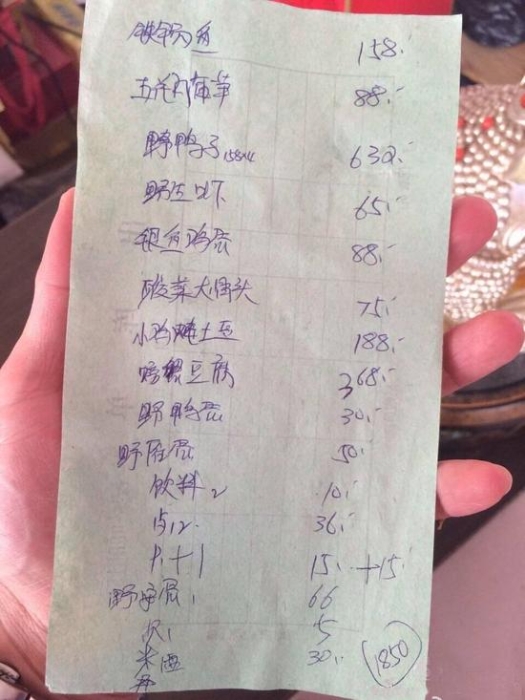 铁锅鱼 158.
五花肉 88.
野鸭子158×4 632.
野生 65.
银鱼鸡蛋 88.
酸菜大骨头 75.
小鸡炖土豆 188.
螃蟹豆腐 368.
野鸭蛋 30.
野 蛋 50.
饮料2 10.
12. 36.
+1 15. +15.
野 蛋1 66
5
米酒 30. 1850